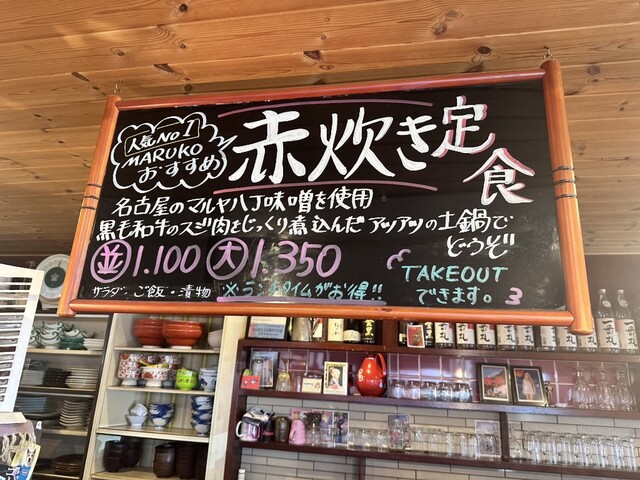 人気No1
MARUKO
おすすめ
赤炊き定食
名古屋のマルヤ八丁味噌を使用
黒毛和牛のスジ肉をじっくり煮込んだ アツアツの土鍋で
どうぞ
並1.100 大1.350
TAKEOUT
できます。
サラダ・ご飯・漬物 ※ランチタイムがお得!!